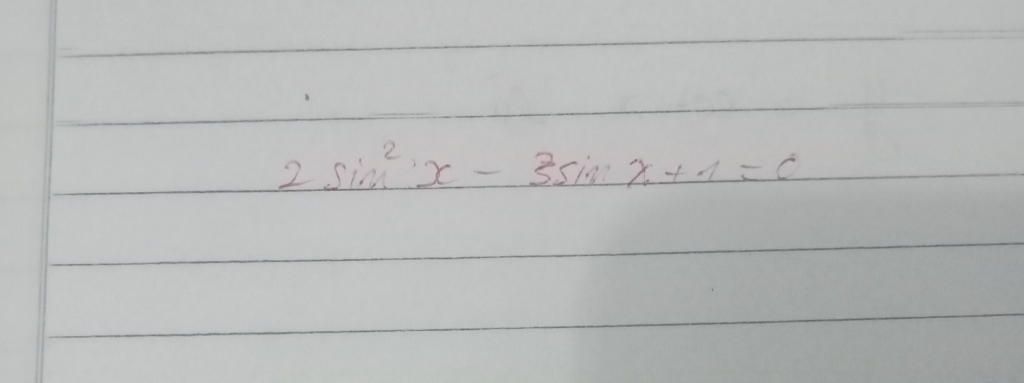 2 sin² x - 3sin x + 1 = 0